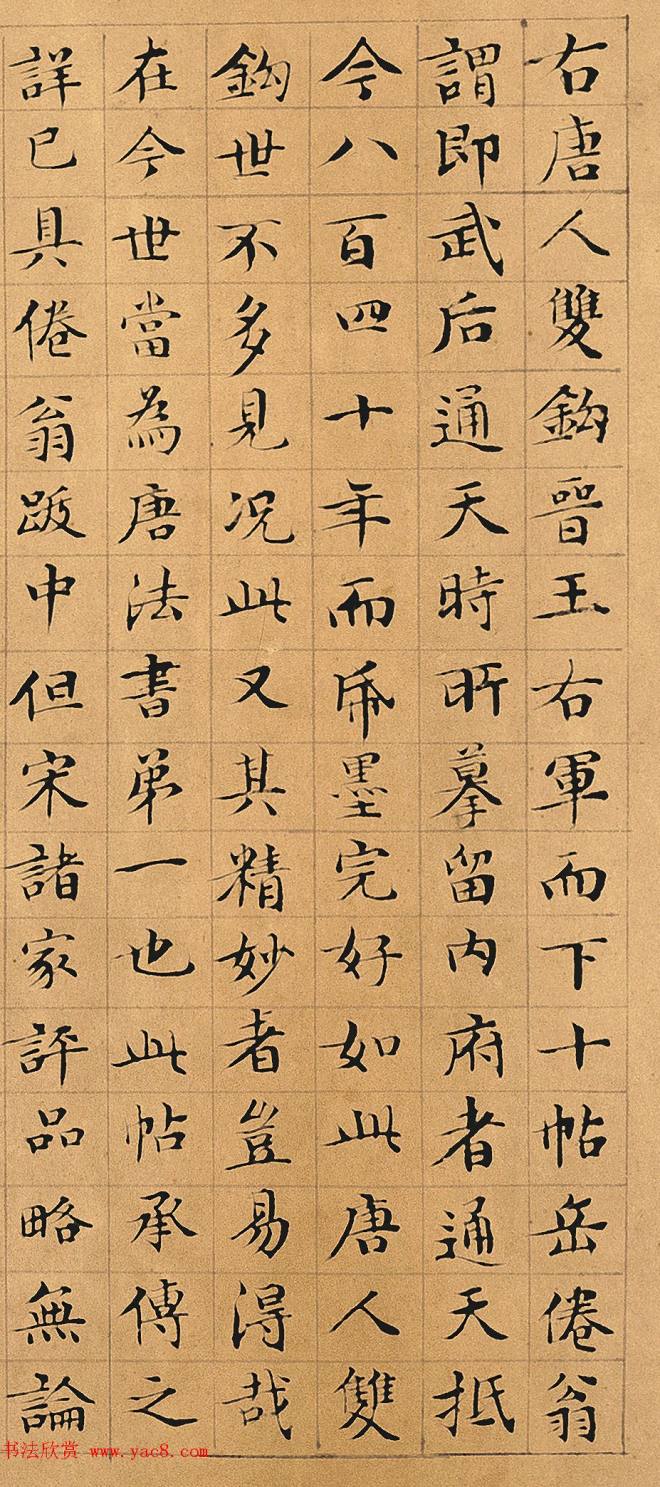 右唐人雙鈎晉王右軍而下十帖岳倦翁
謂即武后通天時所摹留內府者通天抵
今八百四十年而帋墨完好如此唐人雙
鈎世不多見况此又其精妙者豈易得哉
在今世當為唐法書弟一也此帖承傳之
詳已具倦翁跋中但宋諸家評品略無論
书法欣赏 www.yac8.com